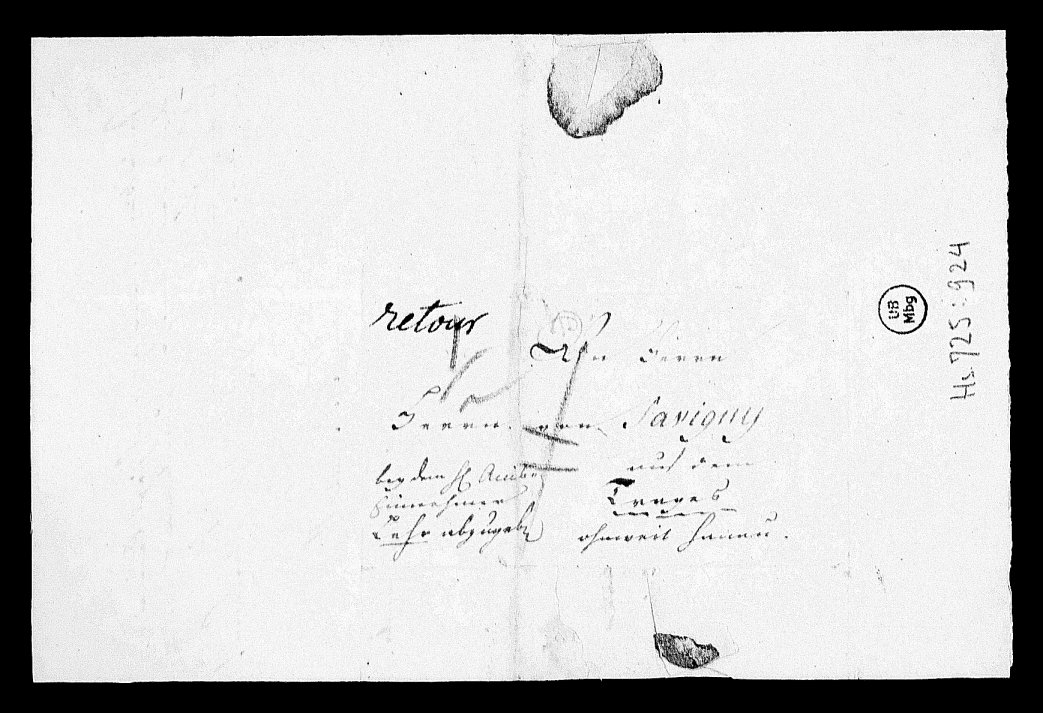 retour
An Herrn
Herrn von Savigny
auf dem
Trages
ohnweit Hanau.
bey dem H Amts
Einnehmer
Lehr abzugeben
UB
Mbg
Hs 725:924